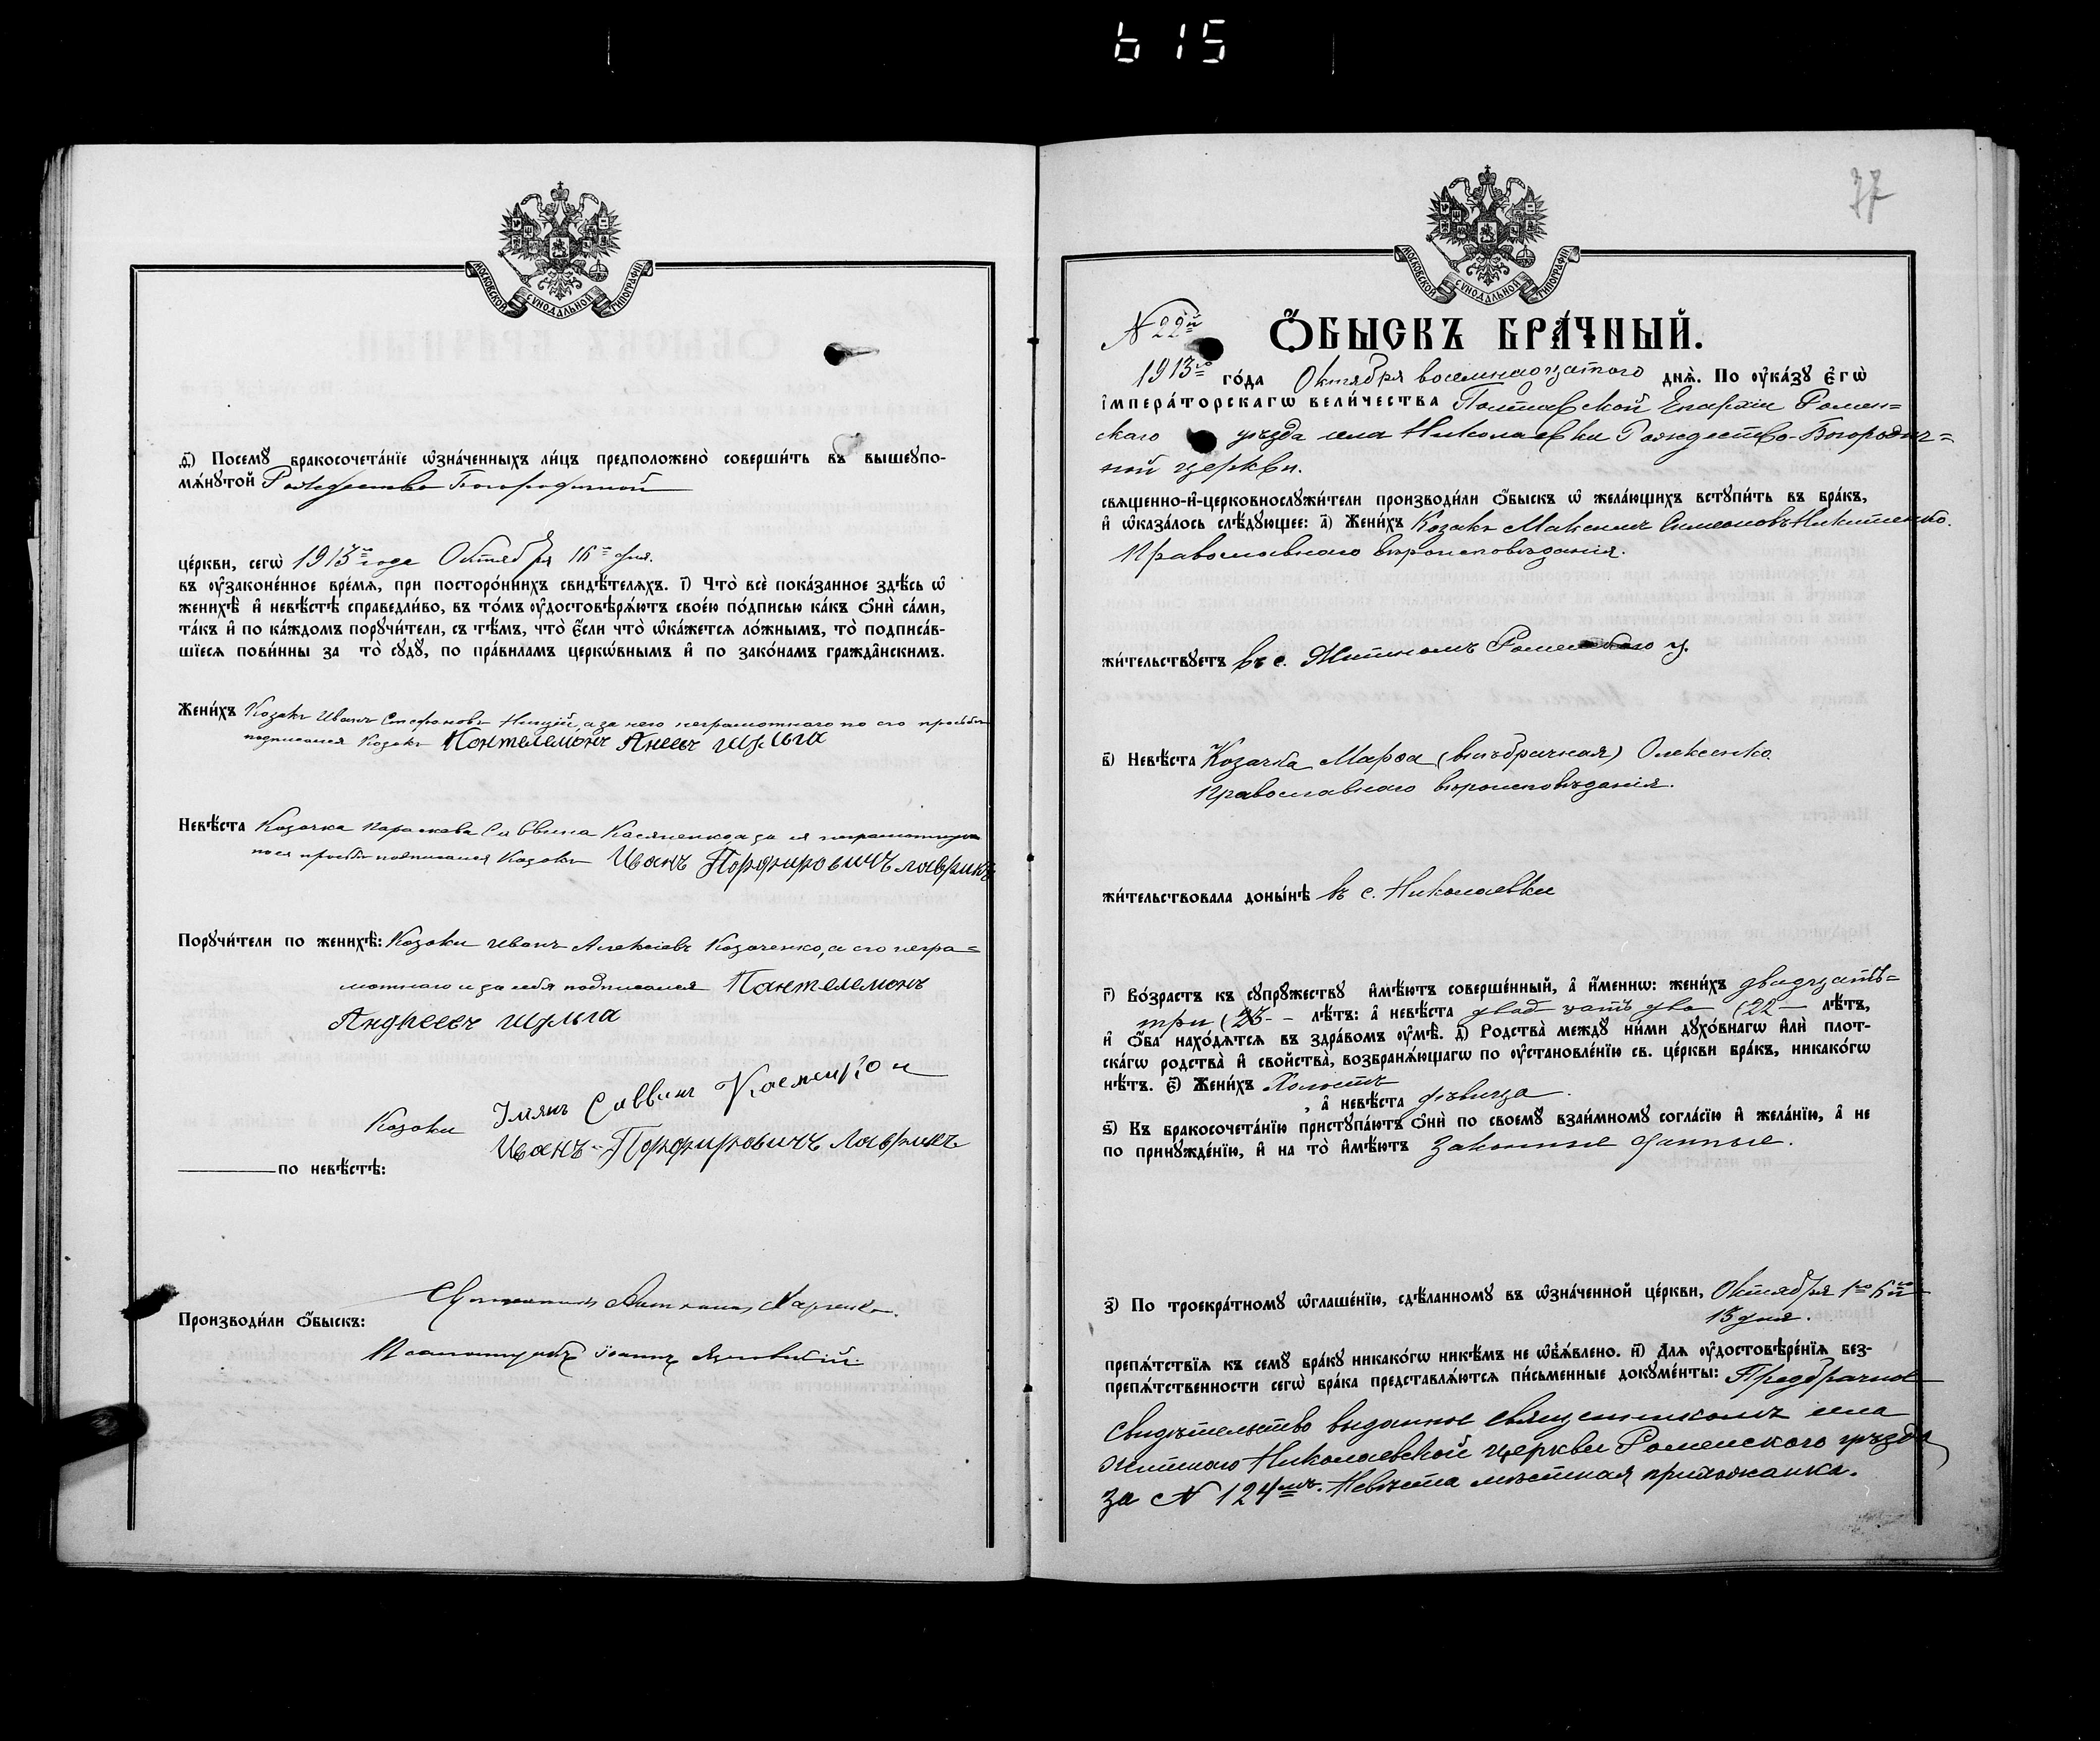 615
МОСКОВСКОЙ СѴНОДАЛЬНОЙ ТИПОГРАФІИ
д҃) Посемꙋ бракосочета́нїе ѡ҆зна́ченныхъ ли́цъ предположено̀ соверши́ть въ вышеꙋпо-
мѧ́нꙋтой Рождество Богородичной
це́ркви, сегѡ̀ 1913го года Октября 16го дня.
въ ᲂу҆законе́нное вре́мѧ, при посторо́ннихъ свидѣ́телѧхъ. і҃) Что̀ всѐ пока́занное здѣ́сь ѡ҆
женихѣ̀ и҆ невѣ́стѣ справедли́во, въ то́мъ ᲂу҆достовѣрѧ́ютъ свое́ю по́дписью ка́къ ѻ҆нѝ са́ми,
та́къ и҆ по ка́ждомъ порꙋчи́тели, съ тѣ́мъ, что̀ є҆́сли что̀ ѡ҆ка́жетсѧ ло́жнымъ, то̀ подписа́в-
шїесѧ пови́нны за то̀ сꙋдꙋ̀, по пра́виламъ церкѡ́внымъ и҆ по зако́намъ гражда̂нскимъ.
Жени́хъ Козакъ Иванъ Стефановъ Нищій, а за него неграмотнаго по его просьбѣ
подписался Козакъ Пантелемонъ Шульга
Невѣ́ста Козачка Параскева Саввина Касяненкова за ея неграмотную
по ея просьбѣ подписался Козакъ Иванъ Порфировичъ лаврикъ
Порꙋчи́тели по женихѣ̀: Козаки Иванъ Алексіевъ Козаченко, а его негра=
мотнаго и за себя подписался Пантелемонъ
Андреевъ шульга
Козаки Саввинъ
Иванъ Порфировичъ Лаврикъ
по невѣ́стѣ:
Производи́ли ѻ҆́быскъ: Священникъ Харченко.
Псаломщикъ Іоаннъ
77
МОСКОВСКОЙ СѴНОДАЛЬНОЙ ТИПОГРАФІИ
N 22й
Ѻ҆́БЫСКЪ БРА́ЧНЫЙ.
1913го го́да Октября восемнадцатого днѧ̀. По ᲂу҆ка́зꙋ є҆гѡ̀
і҆мпера́торскагѡ вели́чества Полтавской Епархіи Ромен=
скаго уѣзда села Николаевки Рождество-Богородич=
ной церкви.
свѧщенно-и҆-церковнослꙋжи́тели производи́ли ѻ҆́быскъ ѡ҆ жела́ющихъ встꙋпи́ть въ бра́къ,
и҆ ѡ҆каза́лось слѣ́дꙋющее: а҃) Жени́хъ Козакъ Максимъ Симеоновъ Никитенко.
Православнаго вѣроисповѣданія.
жи́тельствꙋетъ въ с. Житномъ Роменскаго у.
в҃) Невѣ́ста Козачка Марѳа (внѣбрачная) Олексенко.
Православнаго вѣроисповѣданія.
жи́тельствовала доны́нѣ въ с. Николаевки
г҃) Во́зрастъ къ сꙋпрꙋ́жествꙋ и҆мѣ́ютъ соверше́нный, а҆ и҆́меннѡ: жени́хъ двадцать=
три (23 – лѣ́тъ: а҆ невѣ́ста двадцать два (22 – лѣ́тъ,
и҆ ѻ҆́ба нахо́дѧтсѧ въ здра́вомъ ᲂу҆мѣ̀. д҃) Родства̀ междꙋ ни́ми дꙋхо́внагѡ и҆лѝ плот-
ска́гѡ родства̀ и҆ свойства̀, возбранѧ́ющагѡ по ᲂу҆становле́нїю св. це́ркви бра́къ, никако́гѡ
нѣ́тъ. є҃) Жени́хъ Холостъ
, а҆ невѣ́ста дѣвица.
ѕ҃) Къ бракосочета́нїю пристꙋпа́ютъ ѻ҆нѝ по своемꙋ̀ взаи́мномꙋ согла́сїю и҆ жела́нїю, а҆ не
по принꙋжде́нїю, и҆ на то̀ и҆мѣ́ютъ законные данные.
з҃) По троекра́тномꙋ ѡ҆глаше́нїю, сдѣ́ланномꙋ въ ѡ҆зна́ченной це́ркви, Октября 1го 6го и
13 дня.
препѧ́тствїѧ къ семꙋ̀ бра́кꙋ никако́гѡ никѣ́мъ не ѡ҆б̾ѧ́влено. и҃) Длѧ ᲂу҆достовѣре́нїѧ без-
препѧ́тственности сегѡ̀ бра́ка представлѧ́ютсѧ пи́сьменные докꙋме́нты: Предбрачное
свидѣтельство выданное священникомъ села
Житнаго Николаевской церкви Роменскаго уѣзда
за N 124мъ. Невѣста мѣстная прихожанка.